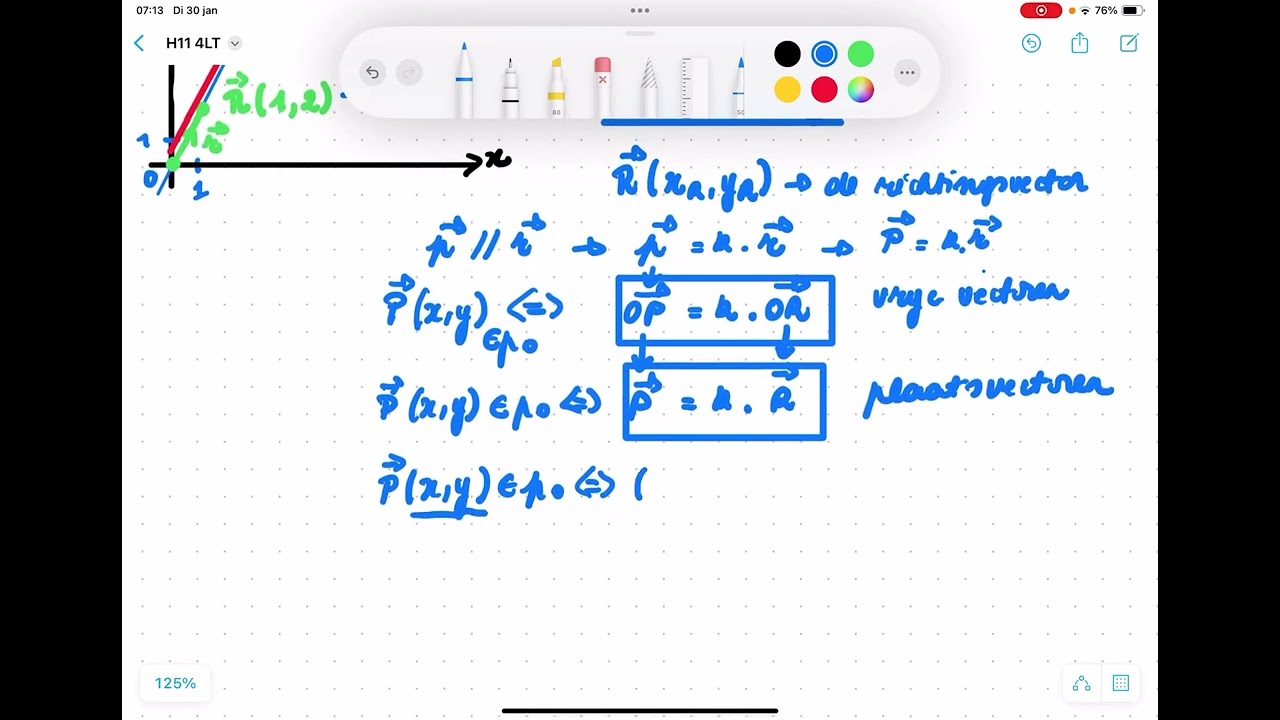 07:13 Di 30 jan
76%
H11 4LT
80
R⃗(1,2)
r⃗
1
x
0
1
R⃗(x_R, y_R) → de richtingsvector
p⃗ // r⃗ → p⃗ = k . r⃗ → P⃗ = k . r⃗
P⃗(x,y) ⇔ OP⃗ = k . OR⃗ vrije vectoren
∈ p₀
P⃗(x,y) ∈ p₀ ⇔ P⃗ = k . R⃗ plaatsvectoren
P⃗(x,y) ∈ p₀ ⇔ (
125%